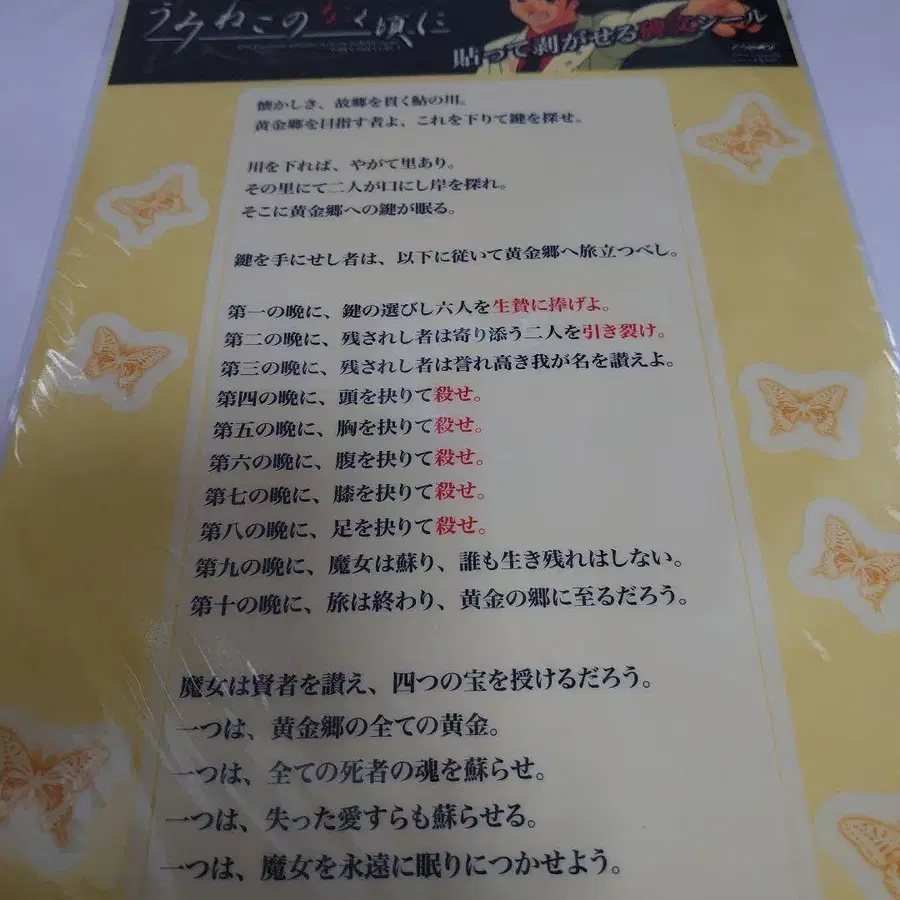 うみねこのなく頃に
貼って剥がせる碑文シール
懐かしき、故郷を貫く鮎の川。
黄金郷を目指す者よ、これを下りて鍵を探せ。
川を下れば、やがて里あり。
その里にて二人が口にし岸を探れ。
そこに黄金郷への鍵が眠る。
鍵を手にせし者は、以下に従いて黄金郷へ旅立つべし。
第一の晩に、鍵の選びし六人を生贄に捧げよ。
第二の晩に、残されし者は寄り添う二人を引き裂け。
第三の晩に、残されし者は誉れ高き我が名を讃えよ。
第四の晩に、頭を抉りて殺せ。
第五の晩に、胸を抉りて殺せ。
第六の晩に、腹を抉りて殺せ。
第七の晩に、膝を抉りて殺せ。
第八の晩に、足を抉りて殺せ。
第九の晩に、魔女は蘇り、誰も生き残れはしない。
第十の晩に、旅は終わり、黄金の郷に至るだろう。
魔女は賢者を讃え、四つの宝を授けるだろう。
一つは、黄金郷の全ての黄金。
一つは、全ての死者の魂を蘇らせ。
一つは、失った愛すらも蘇らせる。
一つは、魔女を永遠に眠りにつかせよう。